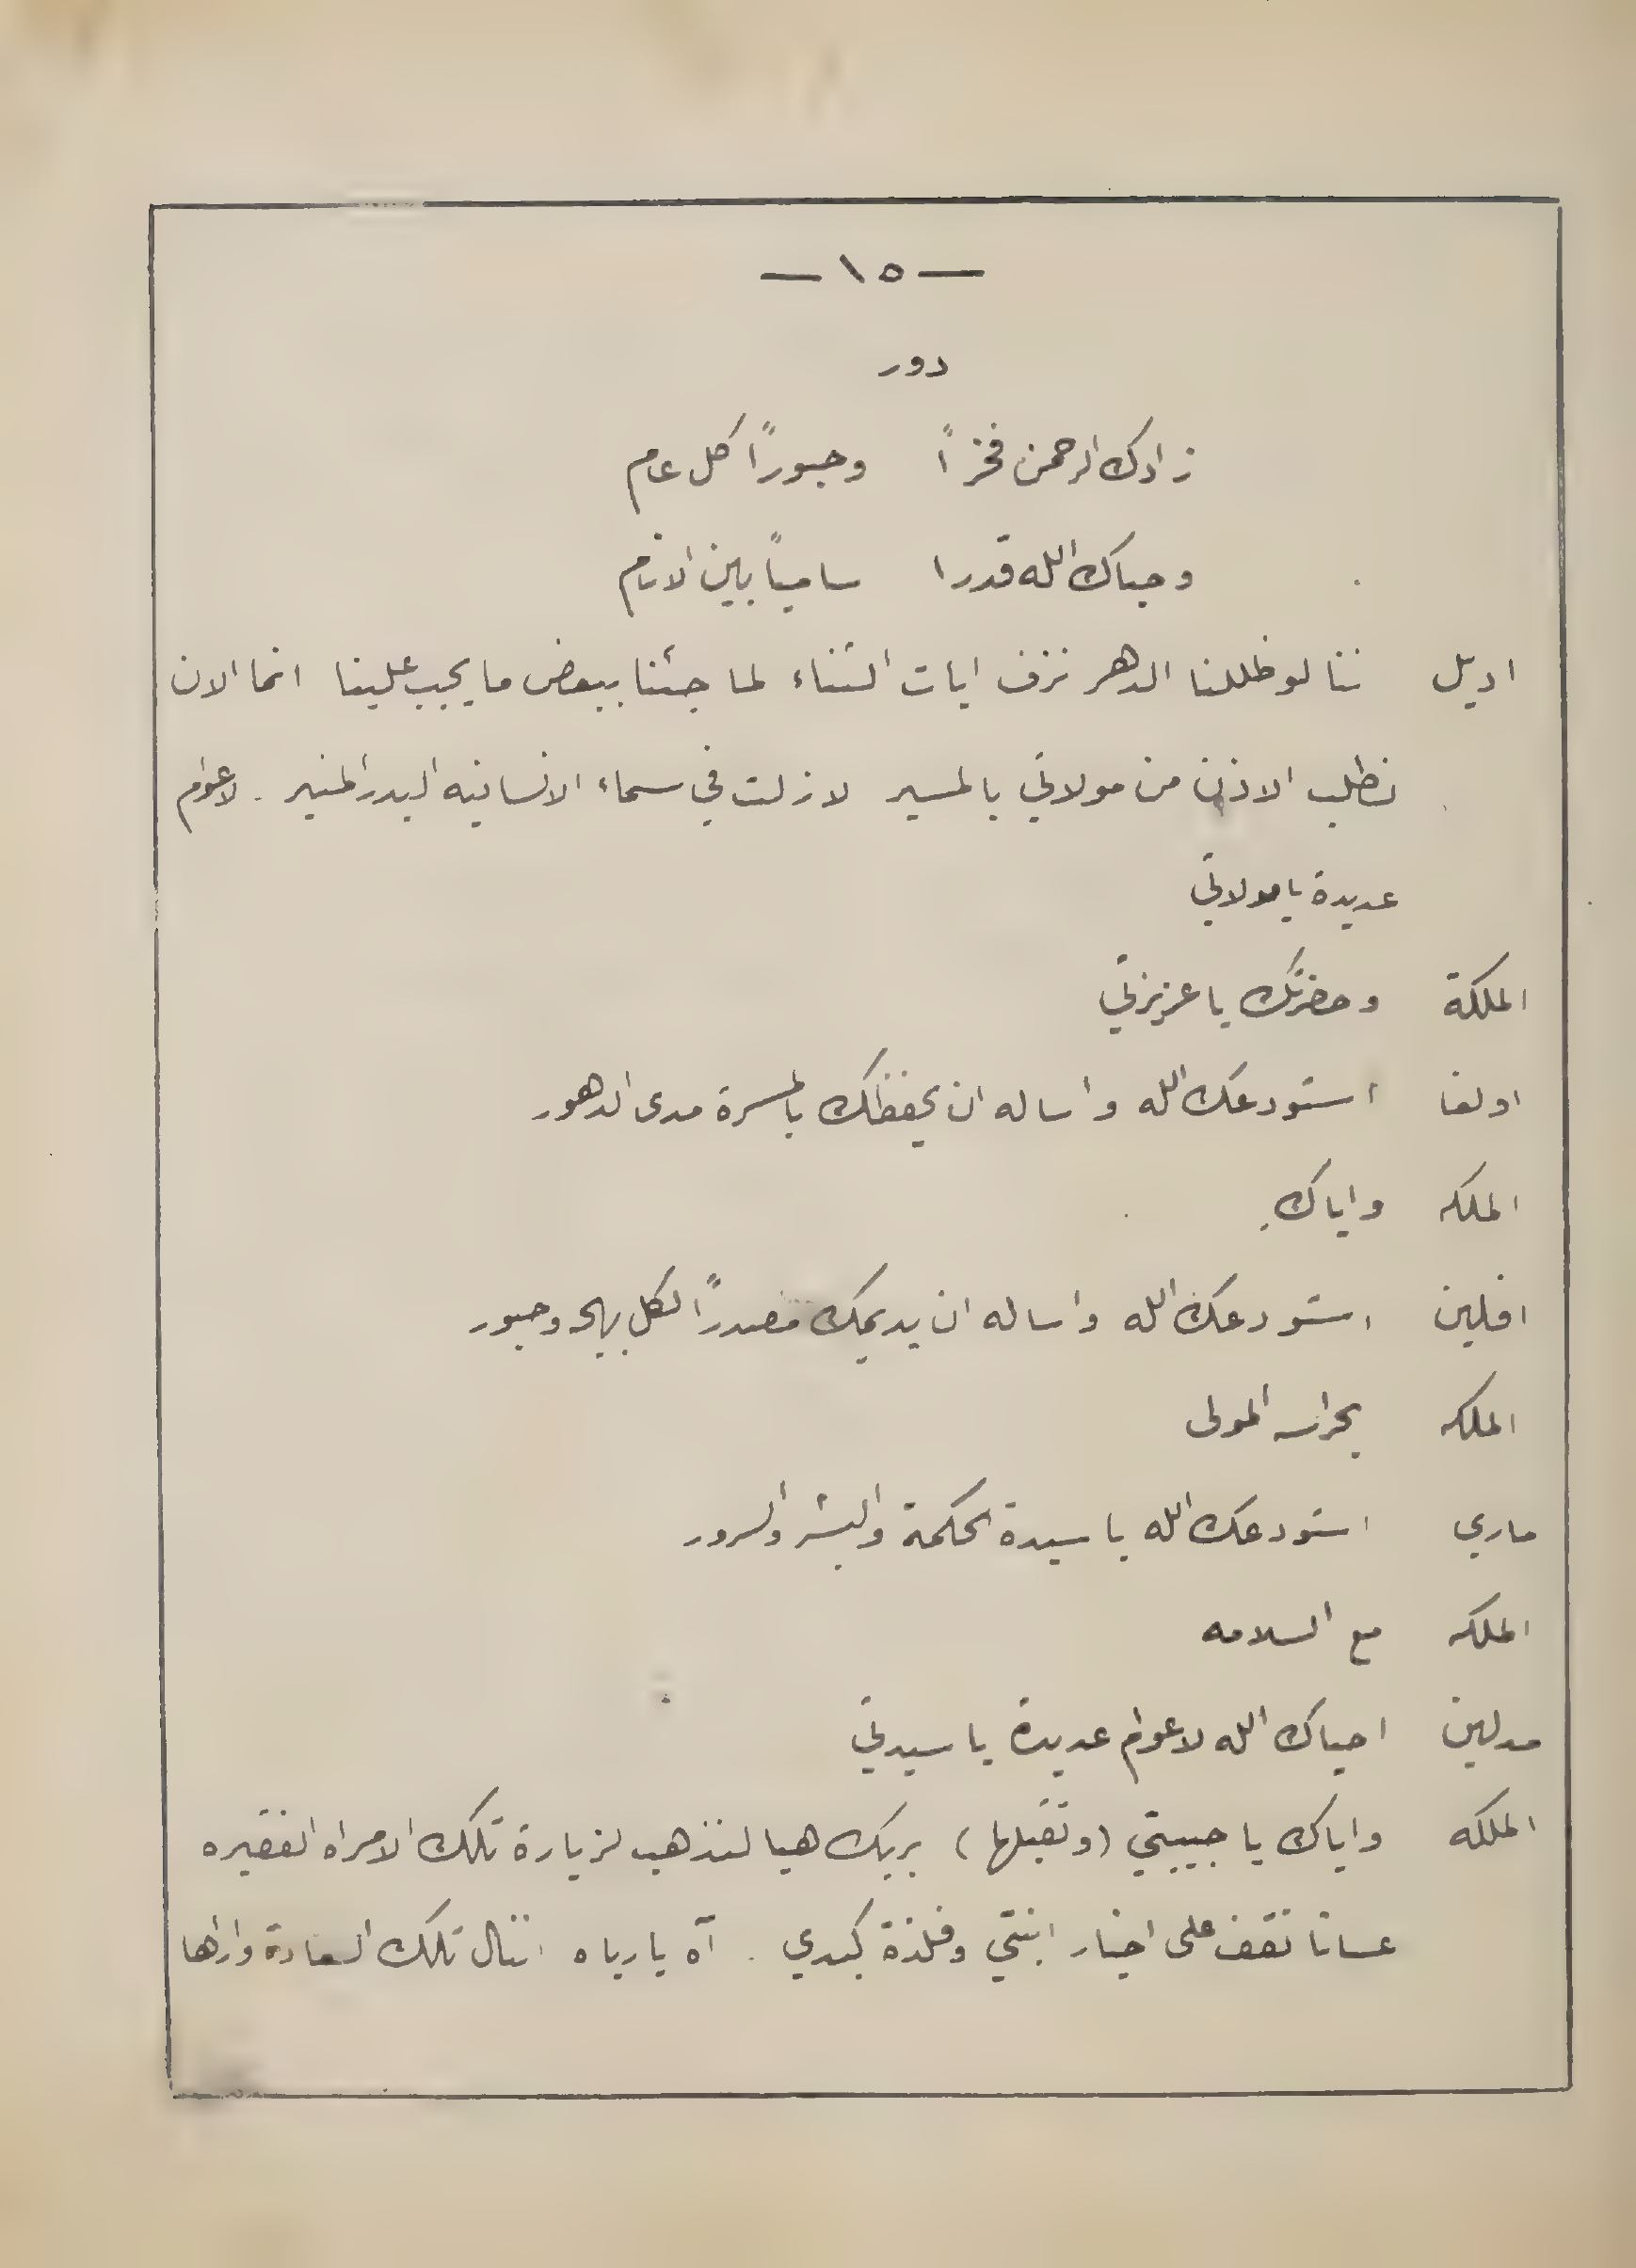 — ١٥ —
دور
زادك الرحمن فخرًا وحبورًا كل عام
وحباك الله قدرا ساميًا بين الانام
اديل ننا لو ظللنا الدهر نزف ايات الثناء لما جئنا ببعض ما يجب علينا انما الان
نطلب الاذن من مولاتي بالمسير لازلت في سماء الانسانيه البدر المنير . لاعوام
عديدة يا مولاتي
الملكة وحضرتك يا عزيزتي
اولغا استودعك الله وأساله ان يحفظك بالمسرة مدى الدهور
الملكه واياك .
افلين استودعك الله وأساله ان يديمك مصدرًا لكل بهجه وحبور
الملكه بحراسه المولى
ماري استودعك الله يا سيدة الحكمة والبشر والسرور
الملكه مع السلامه
مدلين احياك الله لاعوام عديدة يا سيدتي
الملكه واياك يا حبيبتي (وتقبلها) بربك هيا لنذهب لزيارة تلك الامراه الفقيره
عسانا نقف على اخبار ابنتي وفلذة كبدي . آه يارباه اننال تلك السعادة واراها